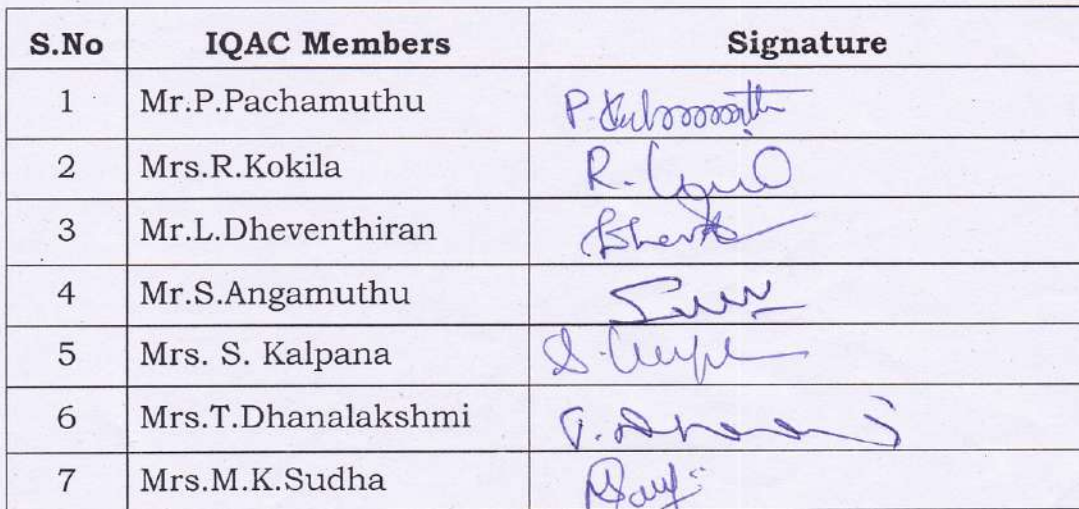 S.No IQAC Members Signature
1 Mr.P.Pachamuthu
2 Mrs.R.Kokila R.
3 Mr.L.Dheventhiran
4 Mr.S.Angamuthu
5 Mrs. S. Kalpana S.
6 Mrs.T.Dhanalakshmi T.
7 Mrs.M.K.Sudha